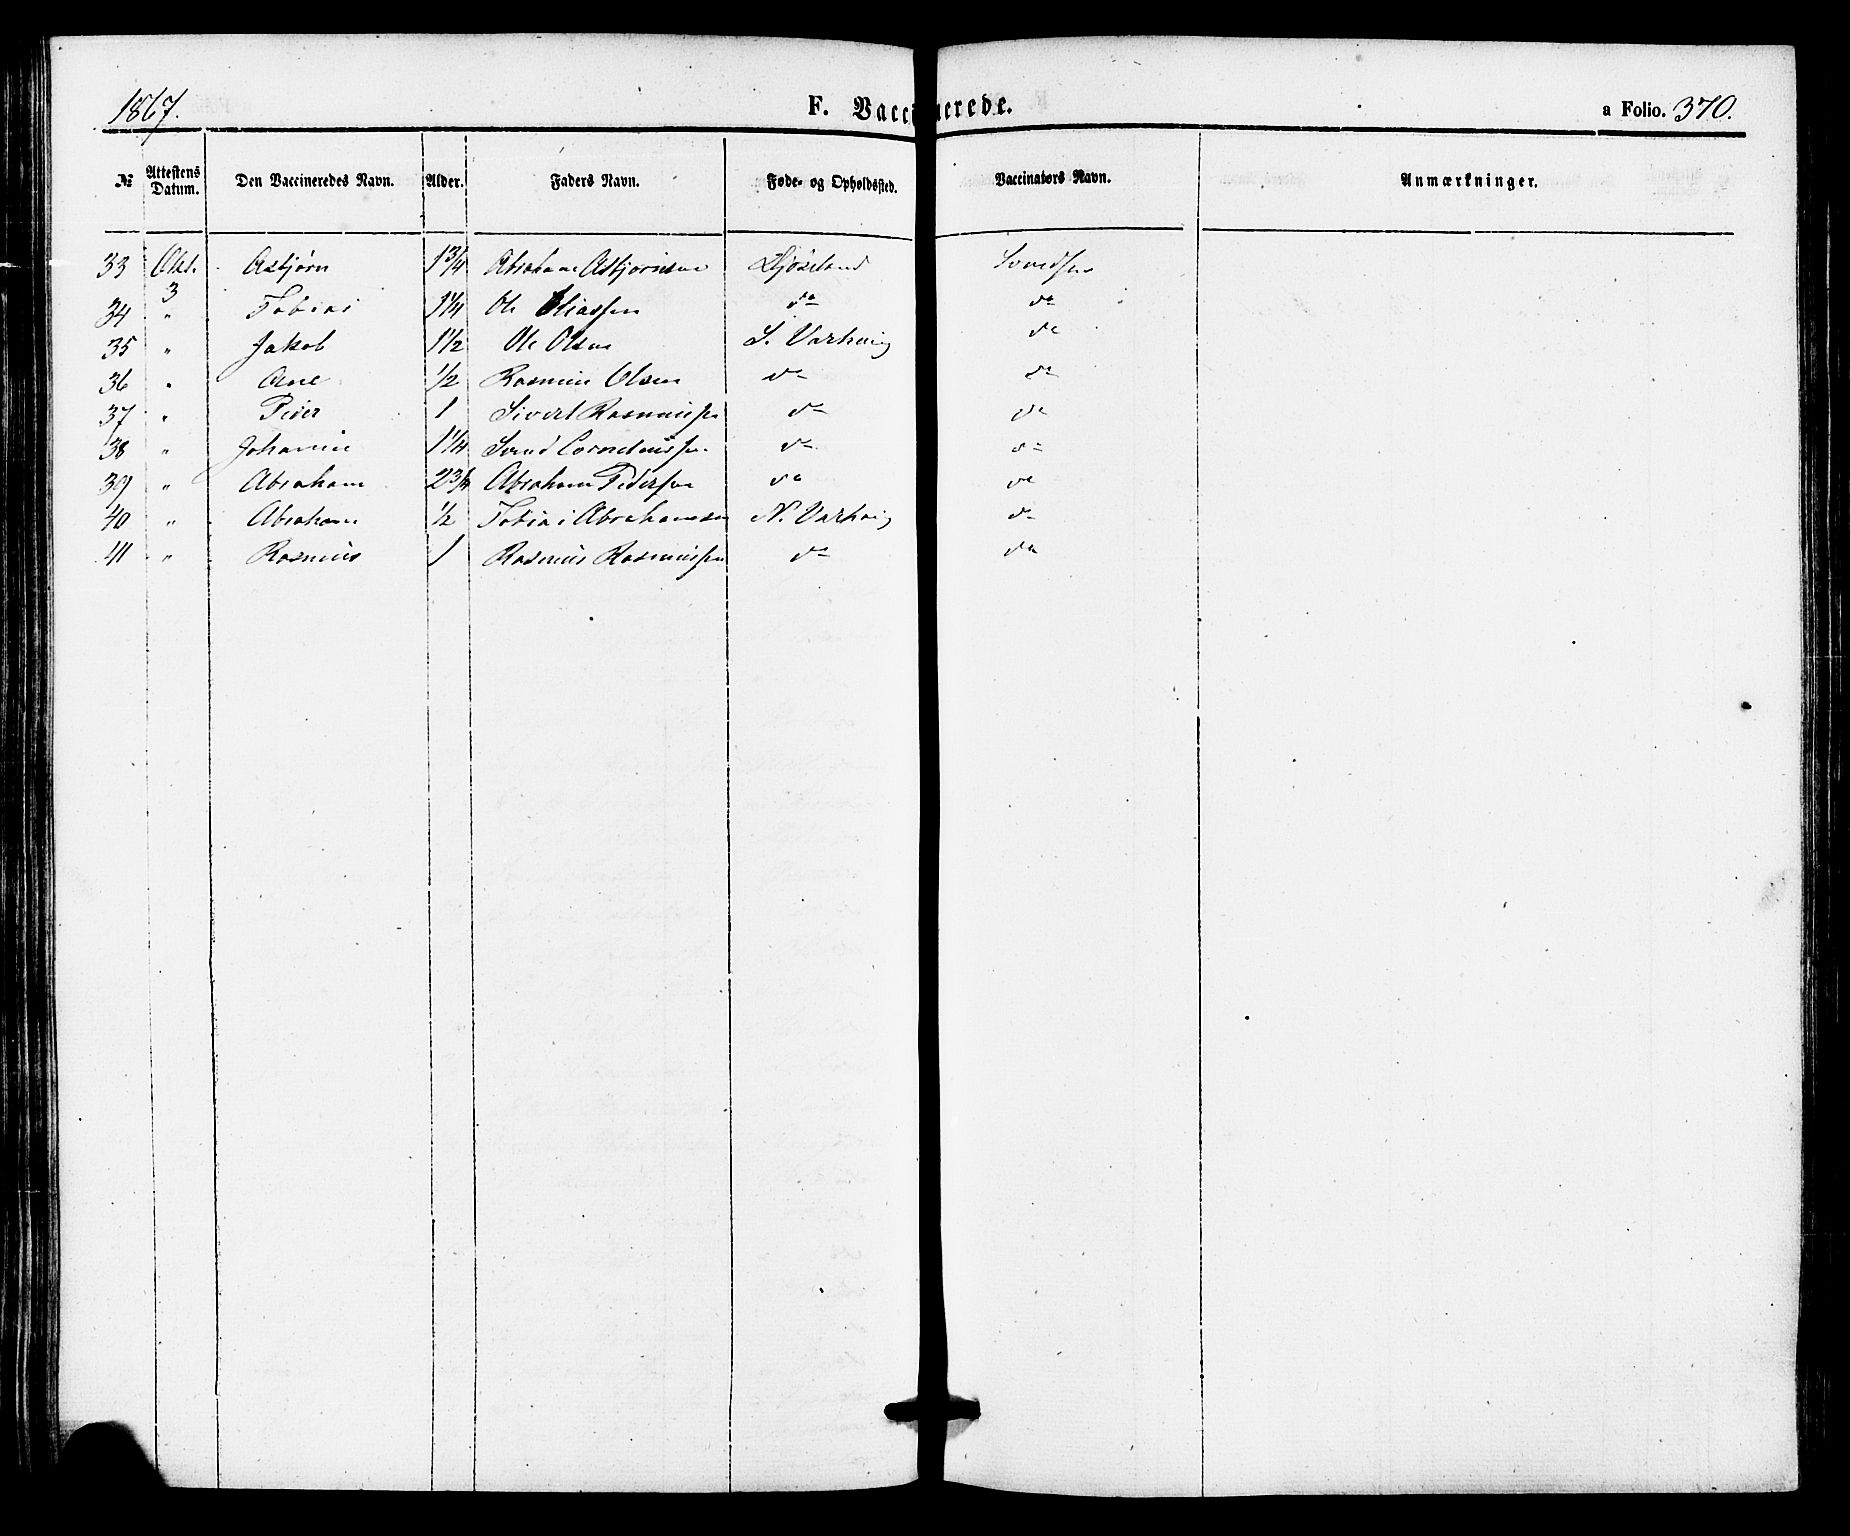 1867. F. Vaccinerede. a Folio. 370.
№ Attestens Datum. Den Vaccineredes Navn. Alder. Faders Navn. Føde- og Opholdssted. Vaccinators Navn. Anmærkninger.
33 Okt. 3 Asbjørn 1 3/4 Abraham Asbjørnsen
34 " Tobias 1 1/4 Ole Eliassen do do
35 " Jakob 1 1/2 Ole Olsen S. Varhaug do
36 " Arne 1/2 Rasmus Olsen do do
37 " Peder 1 Sivert Rasmussen do do
38 " 1 1/4 Svend Corneliussen do do
39 " Abraham 2 3/4 Abraham Pedersen do do
40 " Abraham 1/2 Tobias Abrahamsen N. Varhaug do
41 " Rasmus 1 Rasmus Rasmussen do do